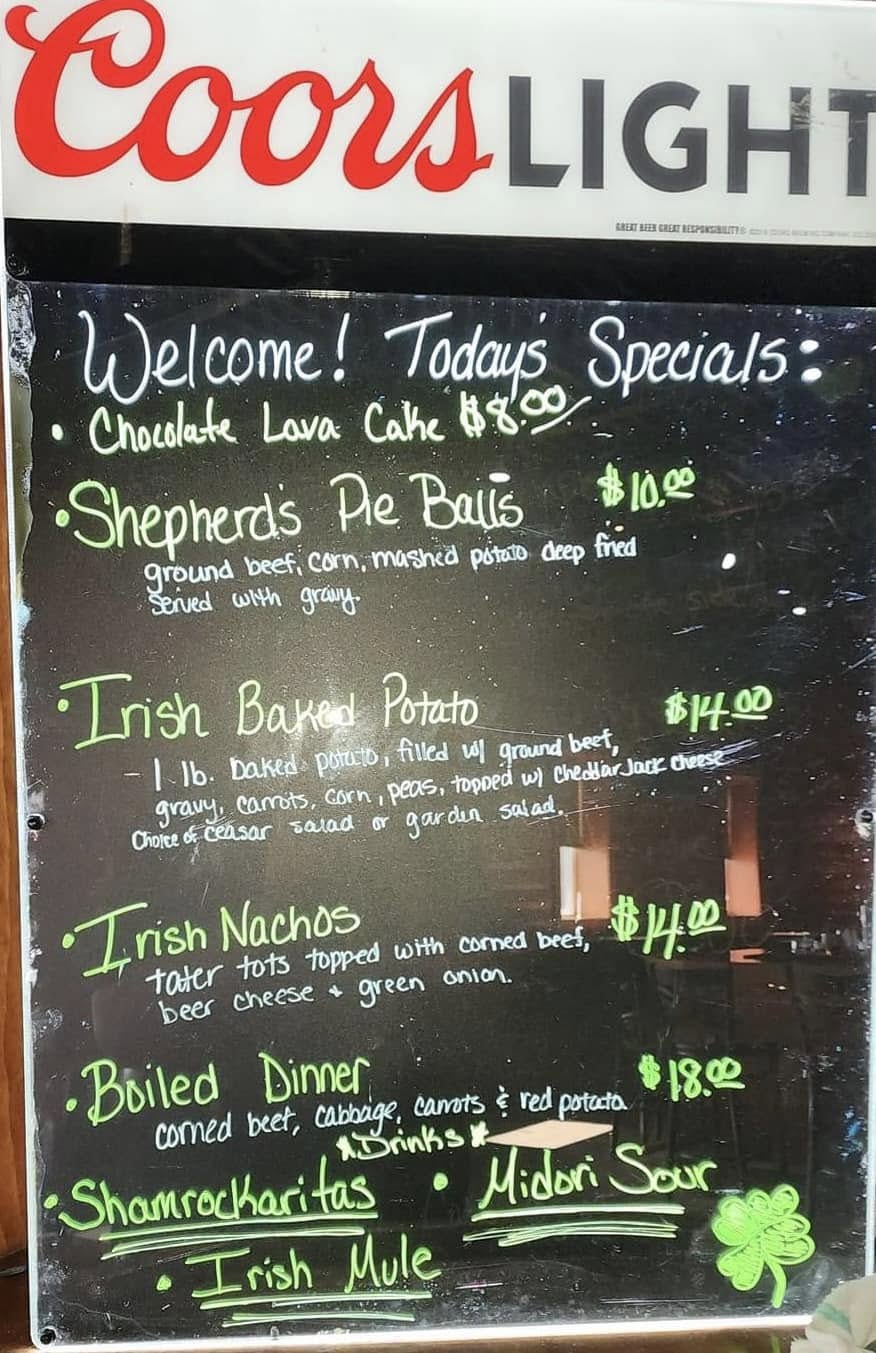 Coors LIGHT
GREAT BEER GREAT RESPONSIBILITY®
Welcome! Today's Specials:
• Chocolate Lava Cake $8.00
• Shepherd's Pie Balls $10.00
ground beef, corn, mashed potato deep fried
served with gravy.
• Irish Baked Potato $14.00
- 1 lb. baked potato, filled w/ ground beef,
gravy, carrots, corn, peas, topped w/ Cheddar Jack cheese
Choice of ceasar salad or garden salad.
• Irish Nachos $14.00
tater tots topped with corned beef,
beer cheese + green onion.
• Boiled Dinner $18.00
corned beef, cabbage, carrots & red potato
*Drinks*
• Shamrockaritas • Midori Sour
• Irish Mule